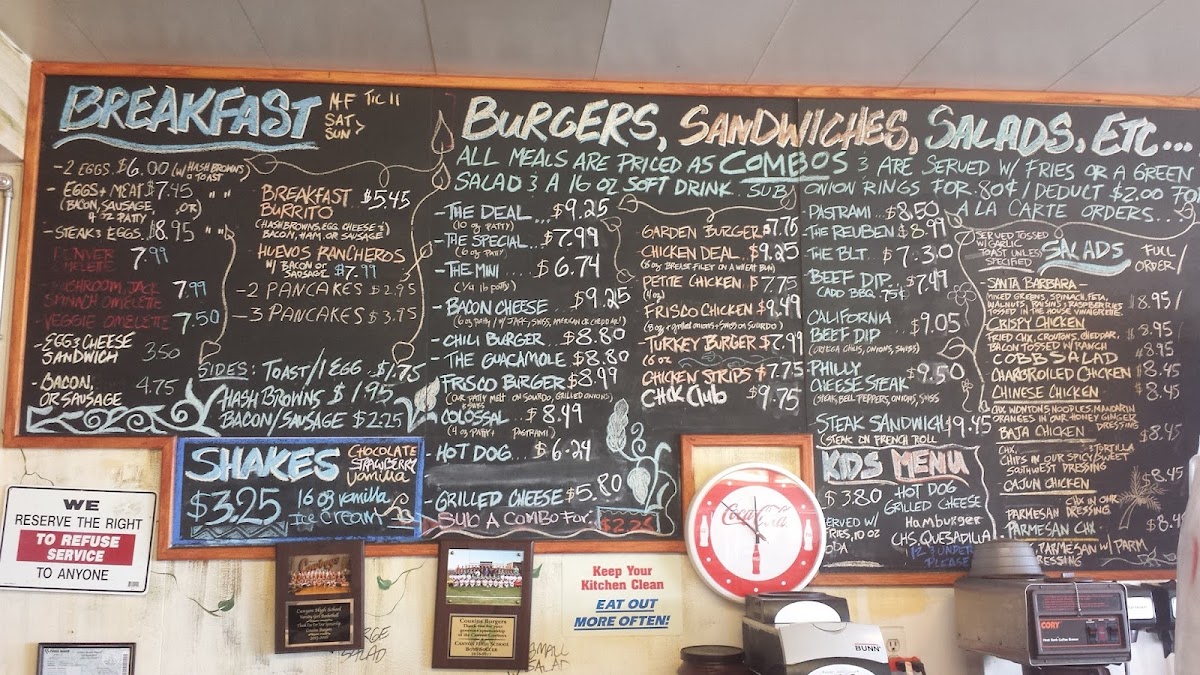 BREAKFAST
M-F TIL 11
SAT
SUN >
- 2 EGGS. $6.00 (W/ HASH BROWNS & TOAST)
- EGGS + MEAT $7.45 " "
(BACON, SAUSAGE, OR)
4 OZ PATTY
- STEAK & EGGS.. $8.95 " "
DENVER OMELETTE 7.99
MUSHROOM JACK SPINACH OMELETTE 7.99
- VEGGIE OMELETTE 7.50
- EGG & CHEESE SANDWICH 3.50
- BACON, OR SAUSAGE 4.75
BREAKFAST BURRITO $5.45
(HASHBROWNS, EGG, CHEESE &
BACON, HAM, OR SAUSAGE
HUEVOS RANCHEROS
W/ BACON OR SAUSAGE $7.99
- 2 PANCAKES $2.95
- 3 PANCAKES $3.95
SIDES: TOAST/1 EGG $1.75
HASH BROWNS $1.95
BACON/SAUSAGE $2.25
SHAKES
CHOCOLATE
STRAWBERRY
VANILLA
$3.25 16 oz vanilla
Ice Cream
BURGERS, SANDWICHES, SALADS, ETC...
ALL MEALS ARE PRICED AS COMBOS & ARE SERVED W/ FRIES OR A GREEN
SALAD & A 16 OZ SOFT DRINK. SUB ONION RINGS FOR 80¢ / DEDUCT $2.00 FO
A LA CARTE ORDERS...
- THE DEAL... $9.25
(10 oz PATTY)
- THE SPECIAL.. $7.99
(6 oz PATTY)
- THE MINI .... $6.74
(1/4 lb PATTY)
- BACON CHEESE $9.25
(6 oz PATTY W/ JACK, SWISS, AMERICAN OR CHEDDAR!)
- CHILI BURGER.. $8.80
- THE GUACAMOLE $8.80
FRISCO BURGER $8.99
(OUR PATTY MELT ON SOURDO, GRILLED ONIONS)
COLOSSAL - $8.49
(4 oz PATTY + PASTRAMI)
- HOT DOG... $6.29
- GRILLED CHEESE $5.80
SUB A COMBO FOR... $2.25
GARDEN BURGER $7.75
CHICKEN DEAL.. $9.25
(6 oz BREAST FILET ON A WHEAT BUN)
PETITE CHICKEN $7.75
(4 oz)
FRISCO CHICKEN $9.49
(8 oz + grilled onions + SWISS ON SOURDO)
- TURKEY BURGER $7.99
(6 oz
CHICKEN STRIPS $7.75
CHCK CLUB $9.75
PASTRAMI... $8.50
- THE REUBEN $8.99
- THE BLT.. $7.30
BEEF DIP.. $7.49
(ADD BBQ. 75¢
CALIFORNIA BEEF DIP $9.05
(ORTEGA CHILIS, ONIONS, SWISS)
- PHILLY CHEESE STEAK $9.50
(STEAK, BELL PEPPERS, ONIONS, SWISS
STEAK SANDWICH $9.45
(STEAK ON FRENCH ROLL
KIDS MENU
$3.80 HOT DOG
GRILLED CHEESE
HAMBURGER
CHS. QUESADILLA
SERVED W/
FRIES, 10 OZ
SODA
12 & UNDER
PLEASE
SERVED TOSSED
W/ GARLIC
TOAST UNLESS
SPECIFIED
SALADS
FULL
ORDER/
- SANTA BARBARA - 8.95/
MIXED GREENS, SPINACH, FETA,
WALNUTS, RAISINS & RASPBERRIES
TOSSED IN THE HOUSE VINAIGRETTE
CRISPY CHICKEN $8.95/
FRIED CHX, CROUTONS, CHEDDAR,
BACON TOSSED W/ RANCH
COBB SALAD $8.95
CHARBROILED CHICKEN $8.45
CHINESE CHICKEN $8.45
CHX WONTONS NOODLES, MANDARIN
ORANGES IN OUR HONEY GINGER DRESSING
BAJA CHICKEN $8.45
CHX, & TORTILLA
CHIPS IN OUR SPICY SWEET
SOUTHWEST DRESSING
CAJUN CHICKEN $8.45
CHX IN OUR
PARMESAN DRESSING
PARMESAN CHX.
PARMESAN W/ PARM
DRESSING
WE
RESERVE THE RIGHT
TO REFUSE
SERVICE
TO ANYONE
Canyon High School
Cousins Burgers
CANYON HIGH SCHOOL
LARGE
SALAD
SMALL
SALAD
Keep Your
Kitchen Clean
EAT OUT
MORE OFTEN!
Coca-Cola
BUNN
CORY